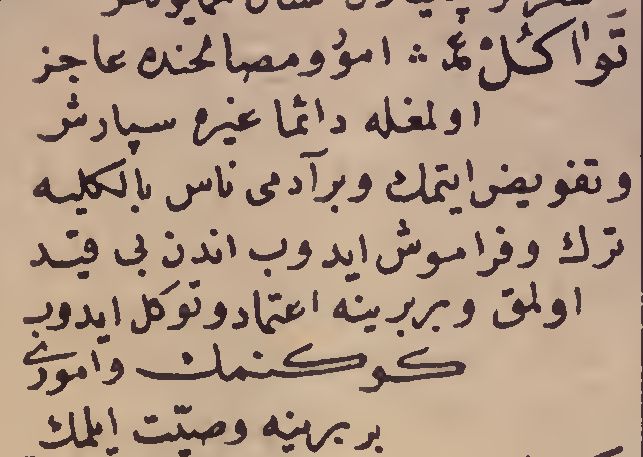 تَوَاكُلْ ع م ∴ امور و مصالحنده عاجز
اولمغله دائما غيره سپارش
و تفويض ايتمك و بر آدمى ناس بالكليه
ترك و فراموش ايدوب اندن بى قيد
اولمق و بربرينه اعتماد و توكل ايدوب
كوكنمك و امورى
بربرينه وصيّت ايلمك